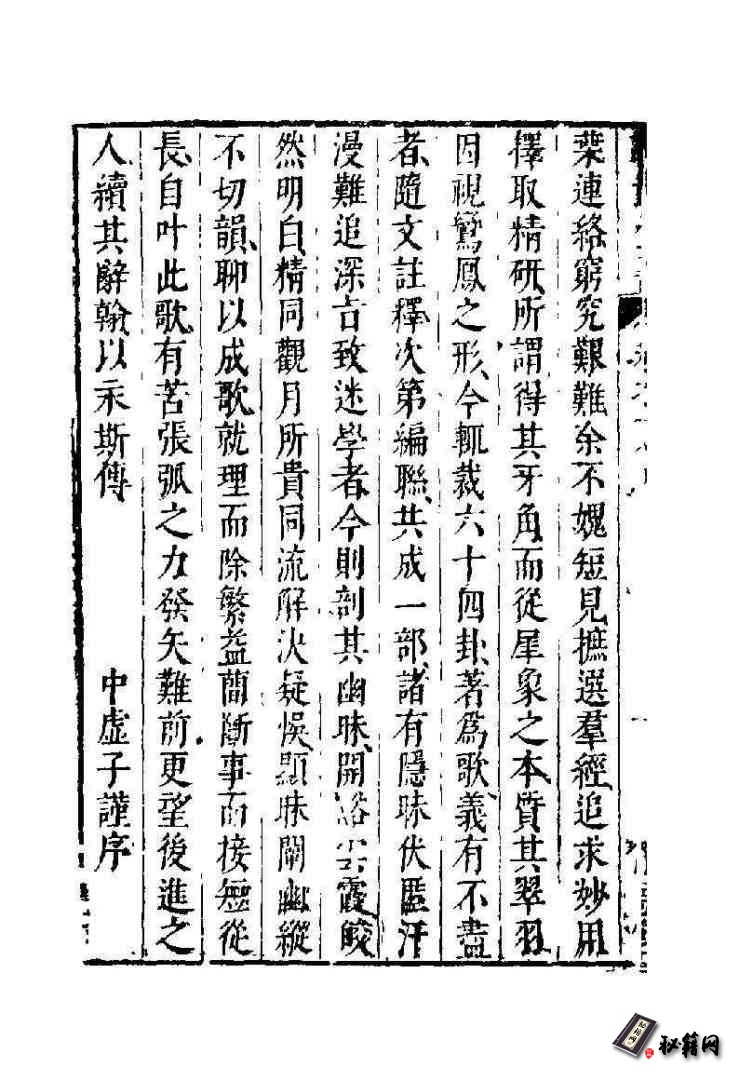 葉連絡窮究艱難余不媿短見摭選羣經追求妙用
擇取精研所謂得其牙角而從犀象之本質其翠羽
因視鸞鳳之形今輒裁六十四卦著爲歌義有不盡
者隨文註釋次第編聯共成一部諸有隱昧伏匿汗
漫難追深言致迷學者今則剖其幽昧開谿雲霞皎
然明白精同觀月所貴同流解決疑悞顯昧闡幽縱
不切韻聊以成歌就理而除繁益蕳斷事而接短從
長自叶此歌有苦張弧之力發矢難前更望後進之
人續其辭翰以永斯傳
中虛子謹序
秘籍网